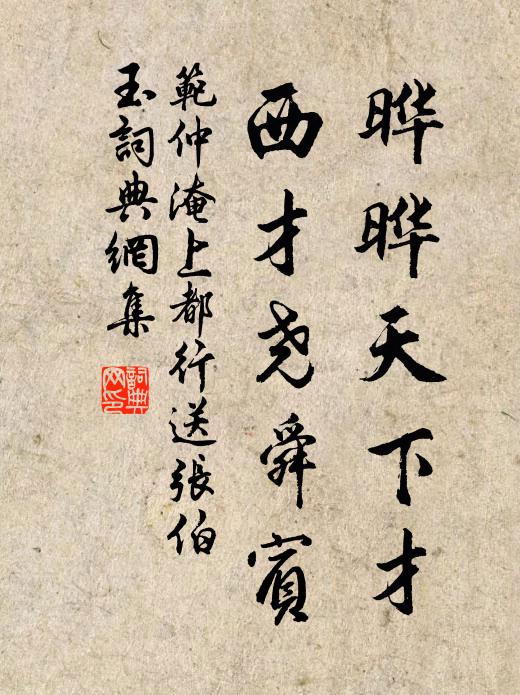 晔晔天下才
西才尧舜賓
範仲淹上都行送張伯
玉詞典網集
詞典网印